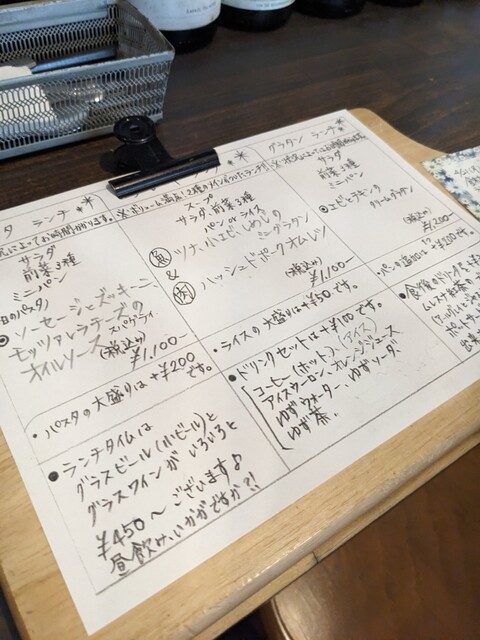 タ ランチ＊
によってお時間かかります。
サラダ
前菜3種
ミニパン
日のパスタ)
●ソーセージとズッキーニ、
モッツァレラチーズの
オイルソース スパゲティ
(税込み)
¥1,100ー
・パスタの大盛りは +¥200
です。
※ボリューム満点！2種のメイン
スープ
サラダ、前菜3種
パン or ライス
魚 ツナ、小エビ、しめじの
ミニグラタン
&
肉 ハッシュドポークオムレツ
(税込み)
¥1,100ー
・ライスの大盛りは+¥50です。
グラタン ランチ＊
サラダ
前菜3種
ミニパン
●エビとチキンの
クリームグラタン
(税込み)
¥1,200ー
・パンを追加は +¥200です。
●ランチタイムは
グラスビール(小ビール)と
グラスワインが いろいろと
¥450〜ございます♪
昼飲み、いかがですか?!
●ドリンクセットは+¥100です。
コーヒー(ホット)、(アイス)
アイスウーロン、オレンジジュース
ゆずウォーター、ゆずソーダ
ゆず茶、
●食後の